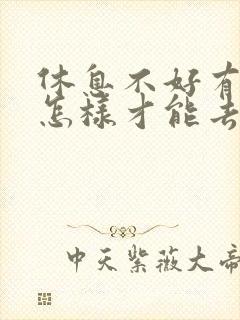 休息不好有
怎樣才能去
中天紫薇大帝